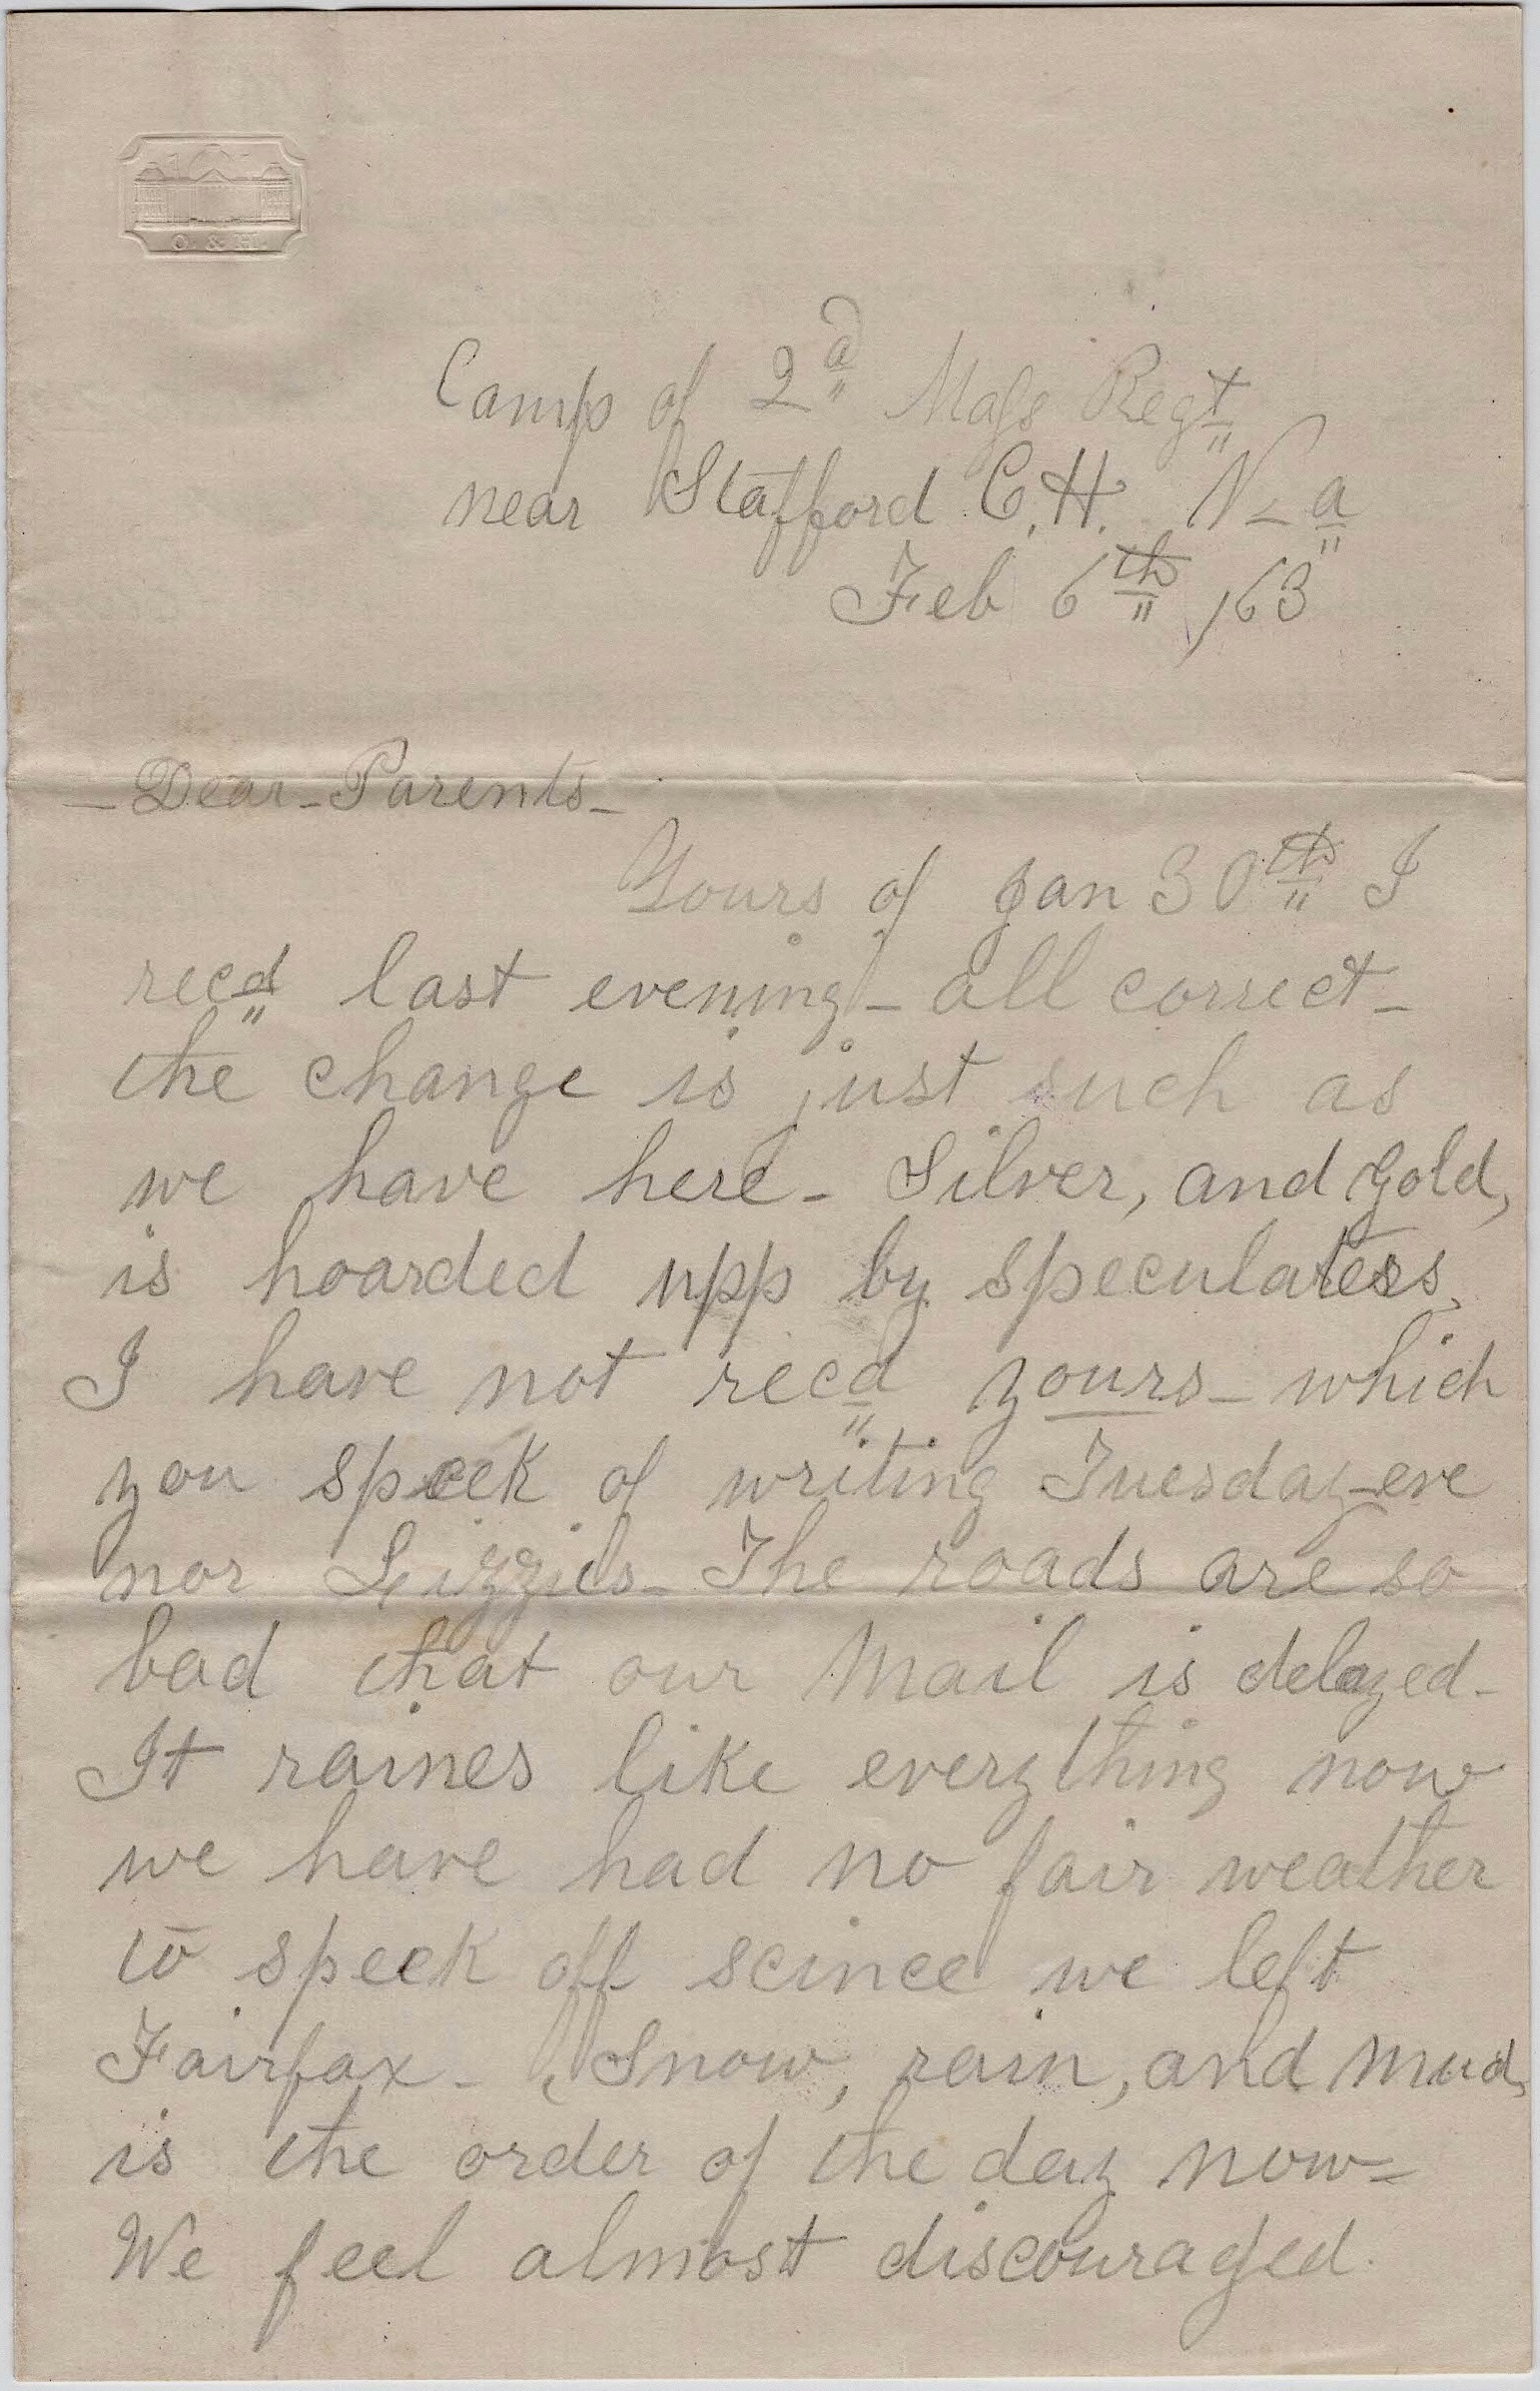 Camp of 2d Mass Regt
near Stafford C.H. V-a
Feb 6th /63
- Dear - Parents -
Yours of Jan 30th I
recd last evening - all correct -
the change is just such as
we have here - Silver, and gold,
is hoarded upp by speculaters,
I have not recd yours - which
you speek of writing Tuesday-eve
nor Lizzies - The roads are so
bad that our Mail is delayed -
It raines like everything now
we have had no fair weather
to speek off scince we left
Fairfax - Snow, rain, and mud,
is the order of the day now -
We feel almost discouraged.